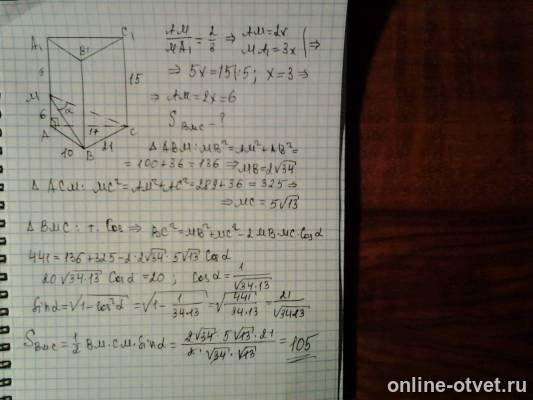 A₁ C₁ B₁
15
M
α
6
A 17 C
10 B 21
AM/MA₁ = 2/3 ⇒ AM = 2x
MA₁ = 3x | ⇒
⇒ 5x = 15 | :5 ; x = 3 ⇒
⇒ AM = 2x = 6
S_BMC - ?
Δ ABM: MB² = AM² + AB² =
= 100 + 36 = 136 ⇒ MB = 2√34
Δ ACM: MC² = AM² + AC² = 289 + 36 = 325 ⇒
⇒ MC = 5√13
Δ BMC: т. Cos ⇒ BC² = MB² + MC² - 2 MB · MC · Cos α
441 = 136 + 325 - 2 · 2√34 · 5√13 Cos α
20√34·13 Cos α = 20 ; Cos α = 1/√34·13
Sin α = √1 - cos² α = √1 - 1/34·13 = √441/34·13 = 21/√34·13
S_BMC = 1/2 BM · CM · Sin α = 2√34 · 5√13 · 21 / 2 · √34 · √13 = 105
online-otvet.ru